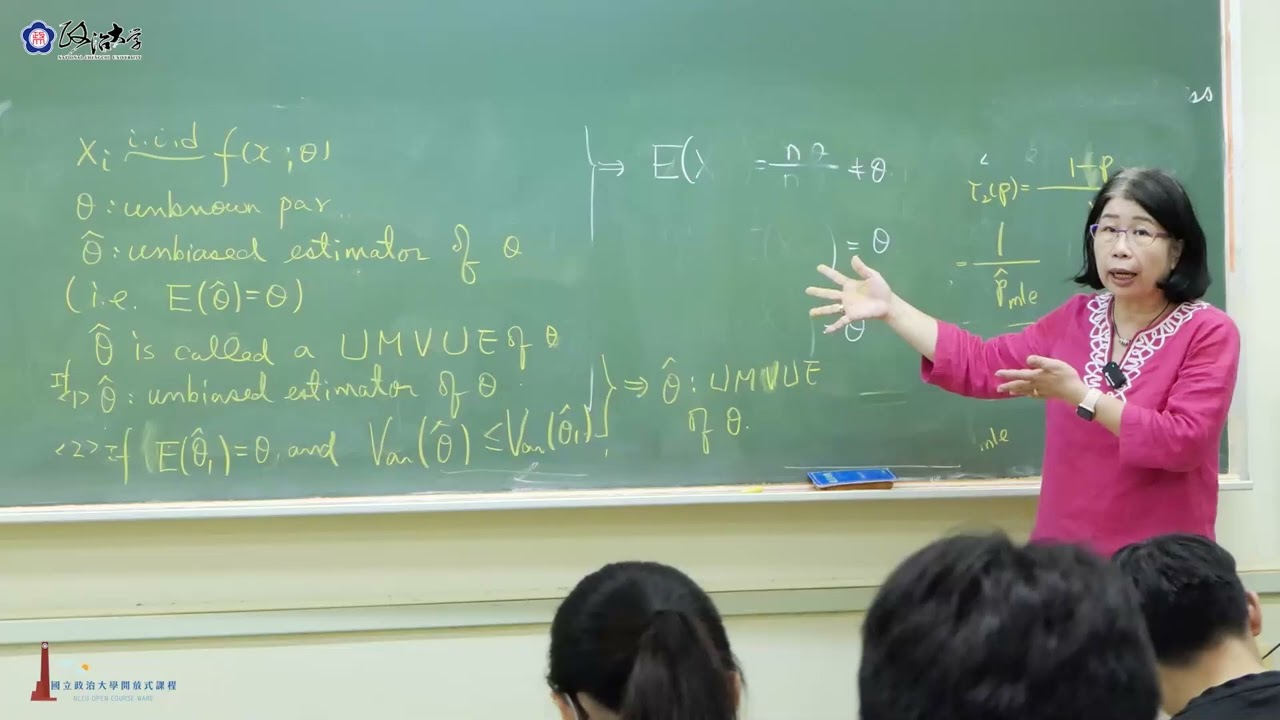 政治大學
NATIONAL CHENGCHI UNIVERSITY
Xi i.i.d f(x;θ)
θ: unknown par.
θ̂: unbiased estimator of θ
(i.e. E(θ̂)=θ)
θ̂ is called a UMVUE of θ
If <1> θ̂: unbiased estimator of θ
<2> If E(θ̂₁)=θ and Var(θ̂) ≤ Var(θ̂₁)
⇒ θ̂: UMVUE
of θ.
⇒ E(X = nθ/n ≠ θ
) = θ
θ
ss
τ₂(p) = 1-p
= 1/p̂mle
mle
國立政治大學開放式課程
NCCU OPEN COURSE WARE